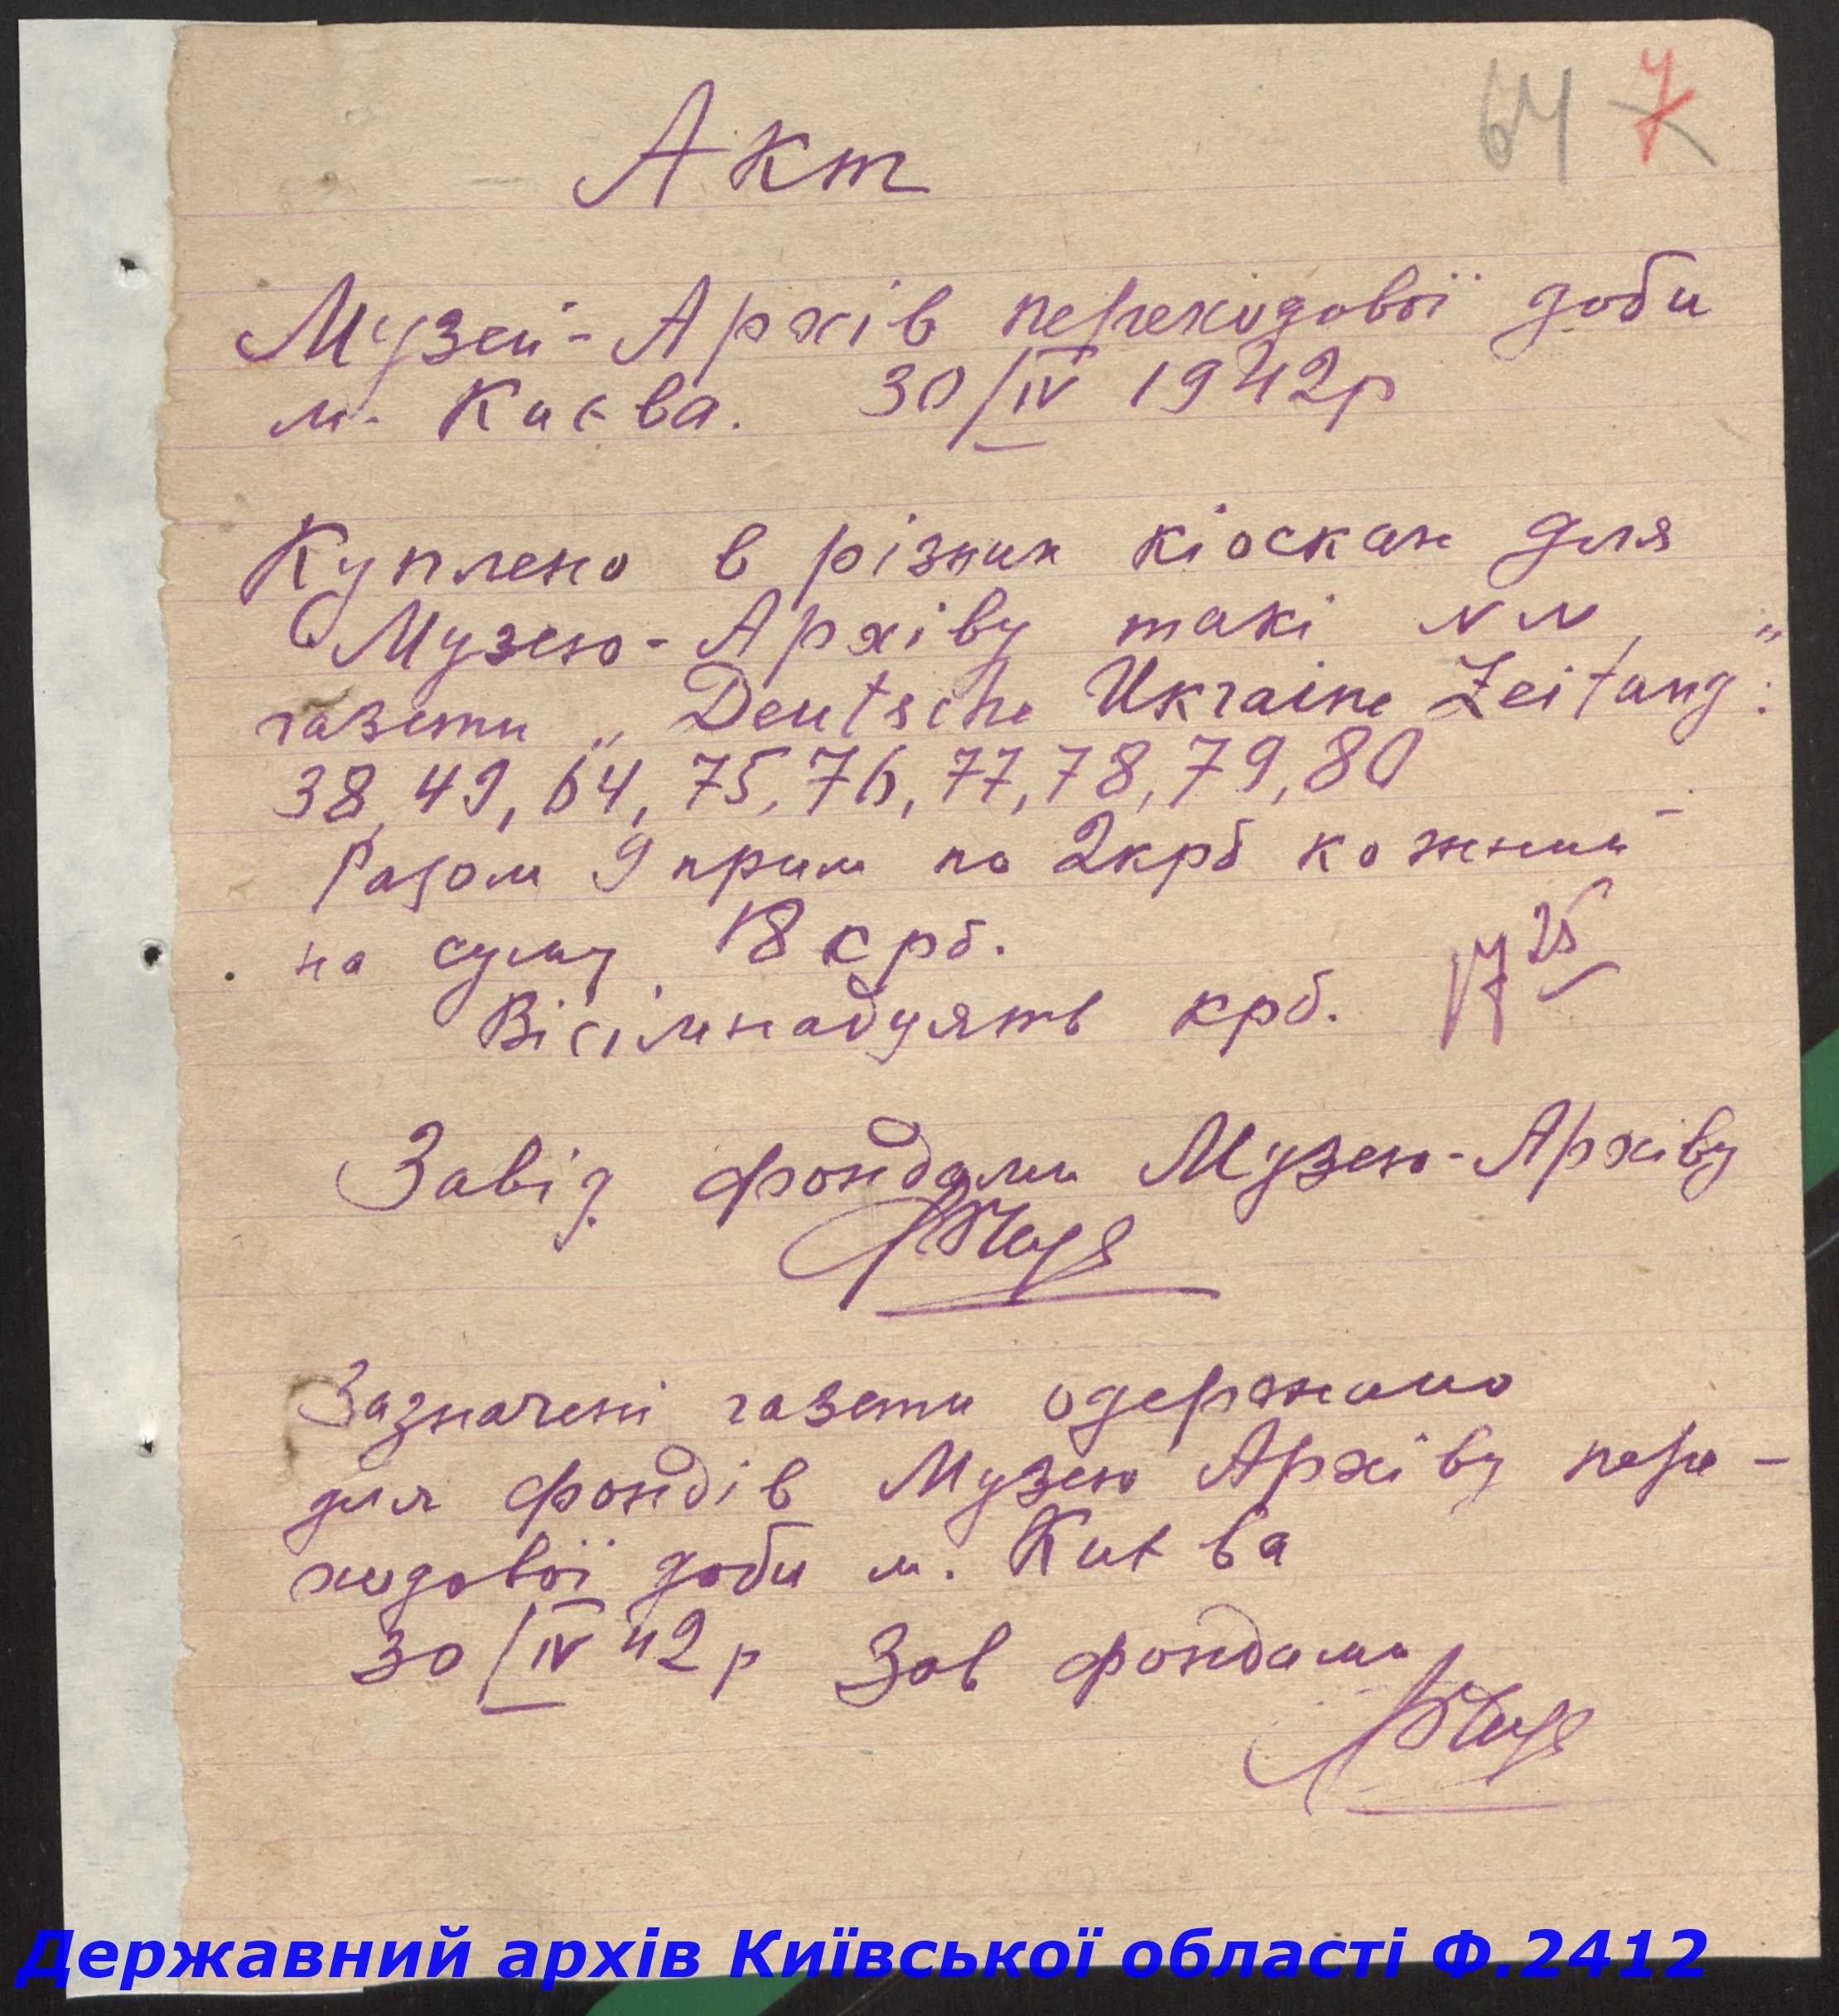 64 7
Акт
Музей-Архів переходової доби
м. Києва. 30/IV 1942р
Куплено в різних кіосках для
Музею-Архіву такі NN
газети „Deutsche Ukraine Zeitung":
38, 49, 64, 75, 76, 77, 78, 79, 80
Разом 9 прим по 2крб кожний
на суму 18 крб.
Вісімнадцять крб. 17 25
Завід. фондами Музею-Архіву
Зазначені газети одержано
для фондів Музею Архіву пере-
ходової доби м. Києва
30/IV 42р Зав фондами
Державний архів Київської області Ф.2412